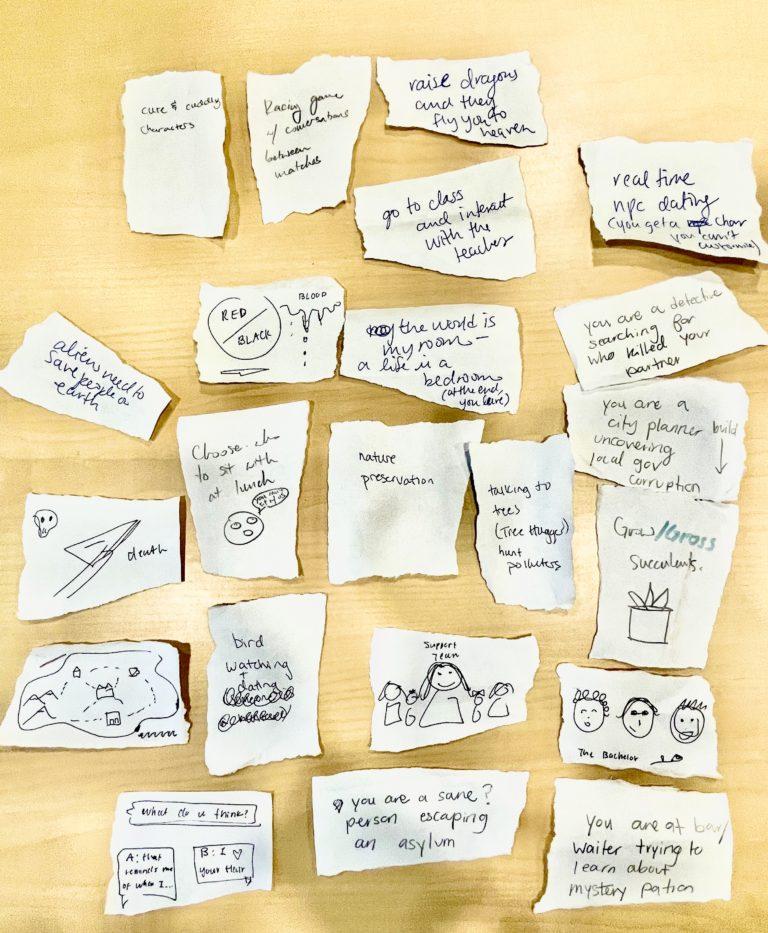 cute & cuddly
characters
Racing game
w/ conversations
between
matches
raise dragons
and they
fly you to
heaven
go to class
and interact
with the
teacher
real time
npc dating
(you get a char
you can't
customize)
alien need to
save people on
earth
RED
BLACK
BLOOD
the world is
my room –
a life is a
bedroom
(at the end,
you leave)
you are a detective
searching for
who killed your
partner
you are a
city planner
uncovering
local gov
corruption
build
Choose who
to sit with
at lunch
nature
preservation
talking to
trees
(Tree Hugger)
hunt
polluters
Grow/Gross
Succulents.
death
bird
watching
+
dating
Support
Team
The Bachelor
What do u think?
A: that
reminds me
of when I...
B: I ♡
your hair
you are a sane?
person escaping
an asylum
You are at bar/
waiter trying to
learn about
mystery patron